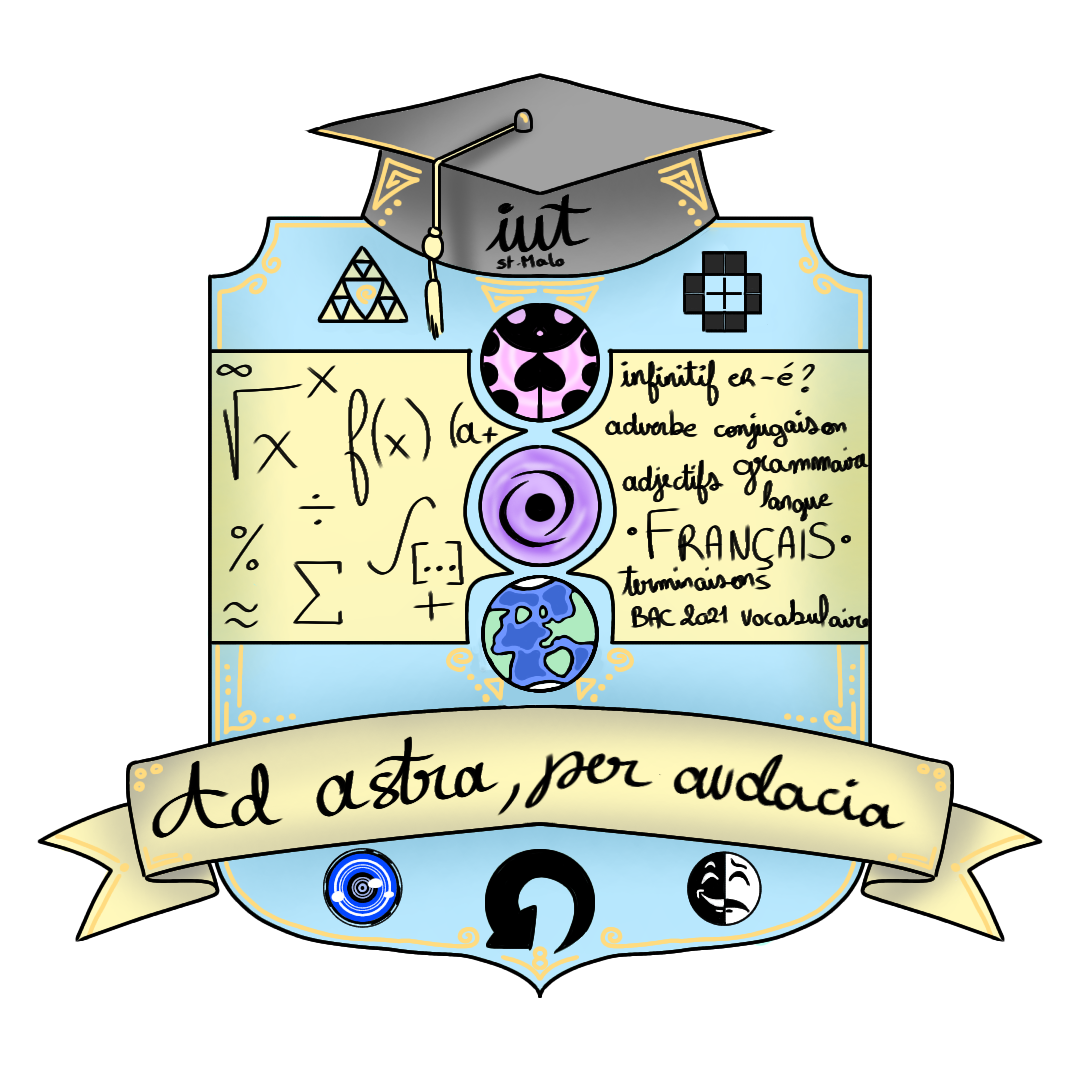 iut
st-Malo
∞
√x
x
f(x)
(a+
÷
%
∫
[...]
≈
Σ
+
infinitif er-é?
adverbe conjugaison
adjectifs grammaire
langue
• FRANÇAIS •
terminaisons
BAC 2021 vocabulaire
Ad astra, per audacia